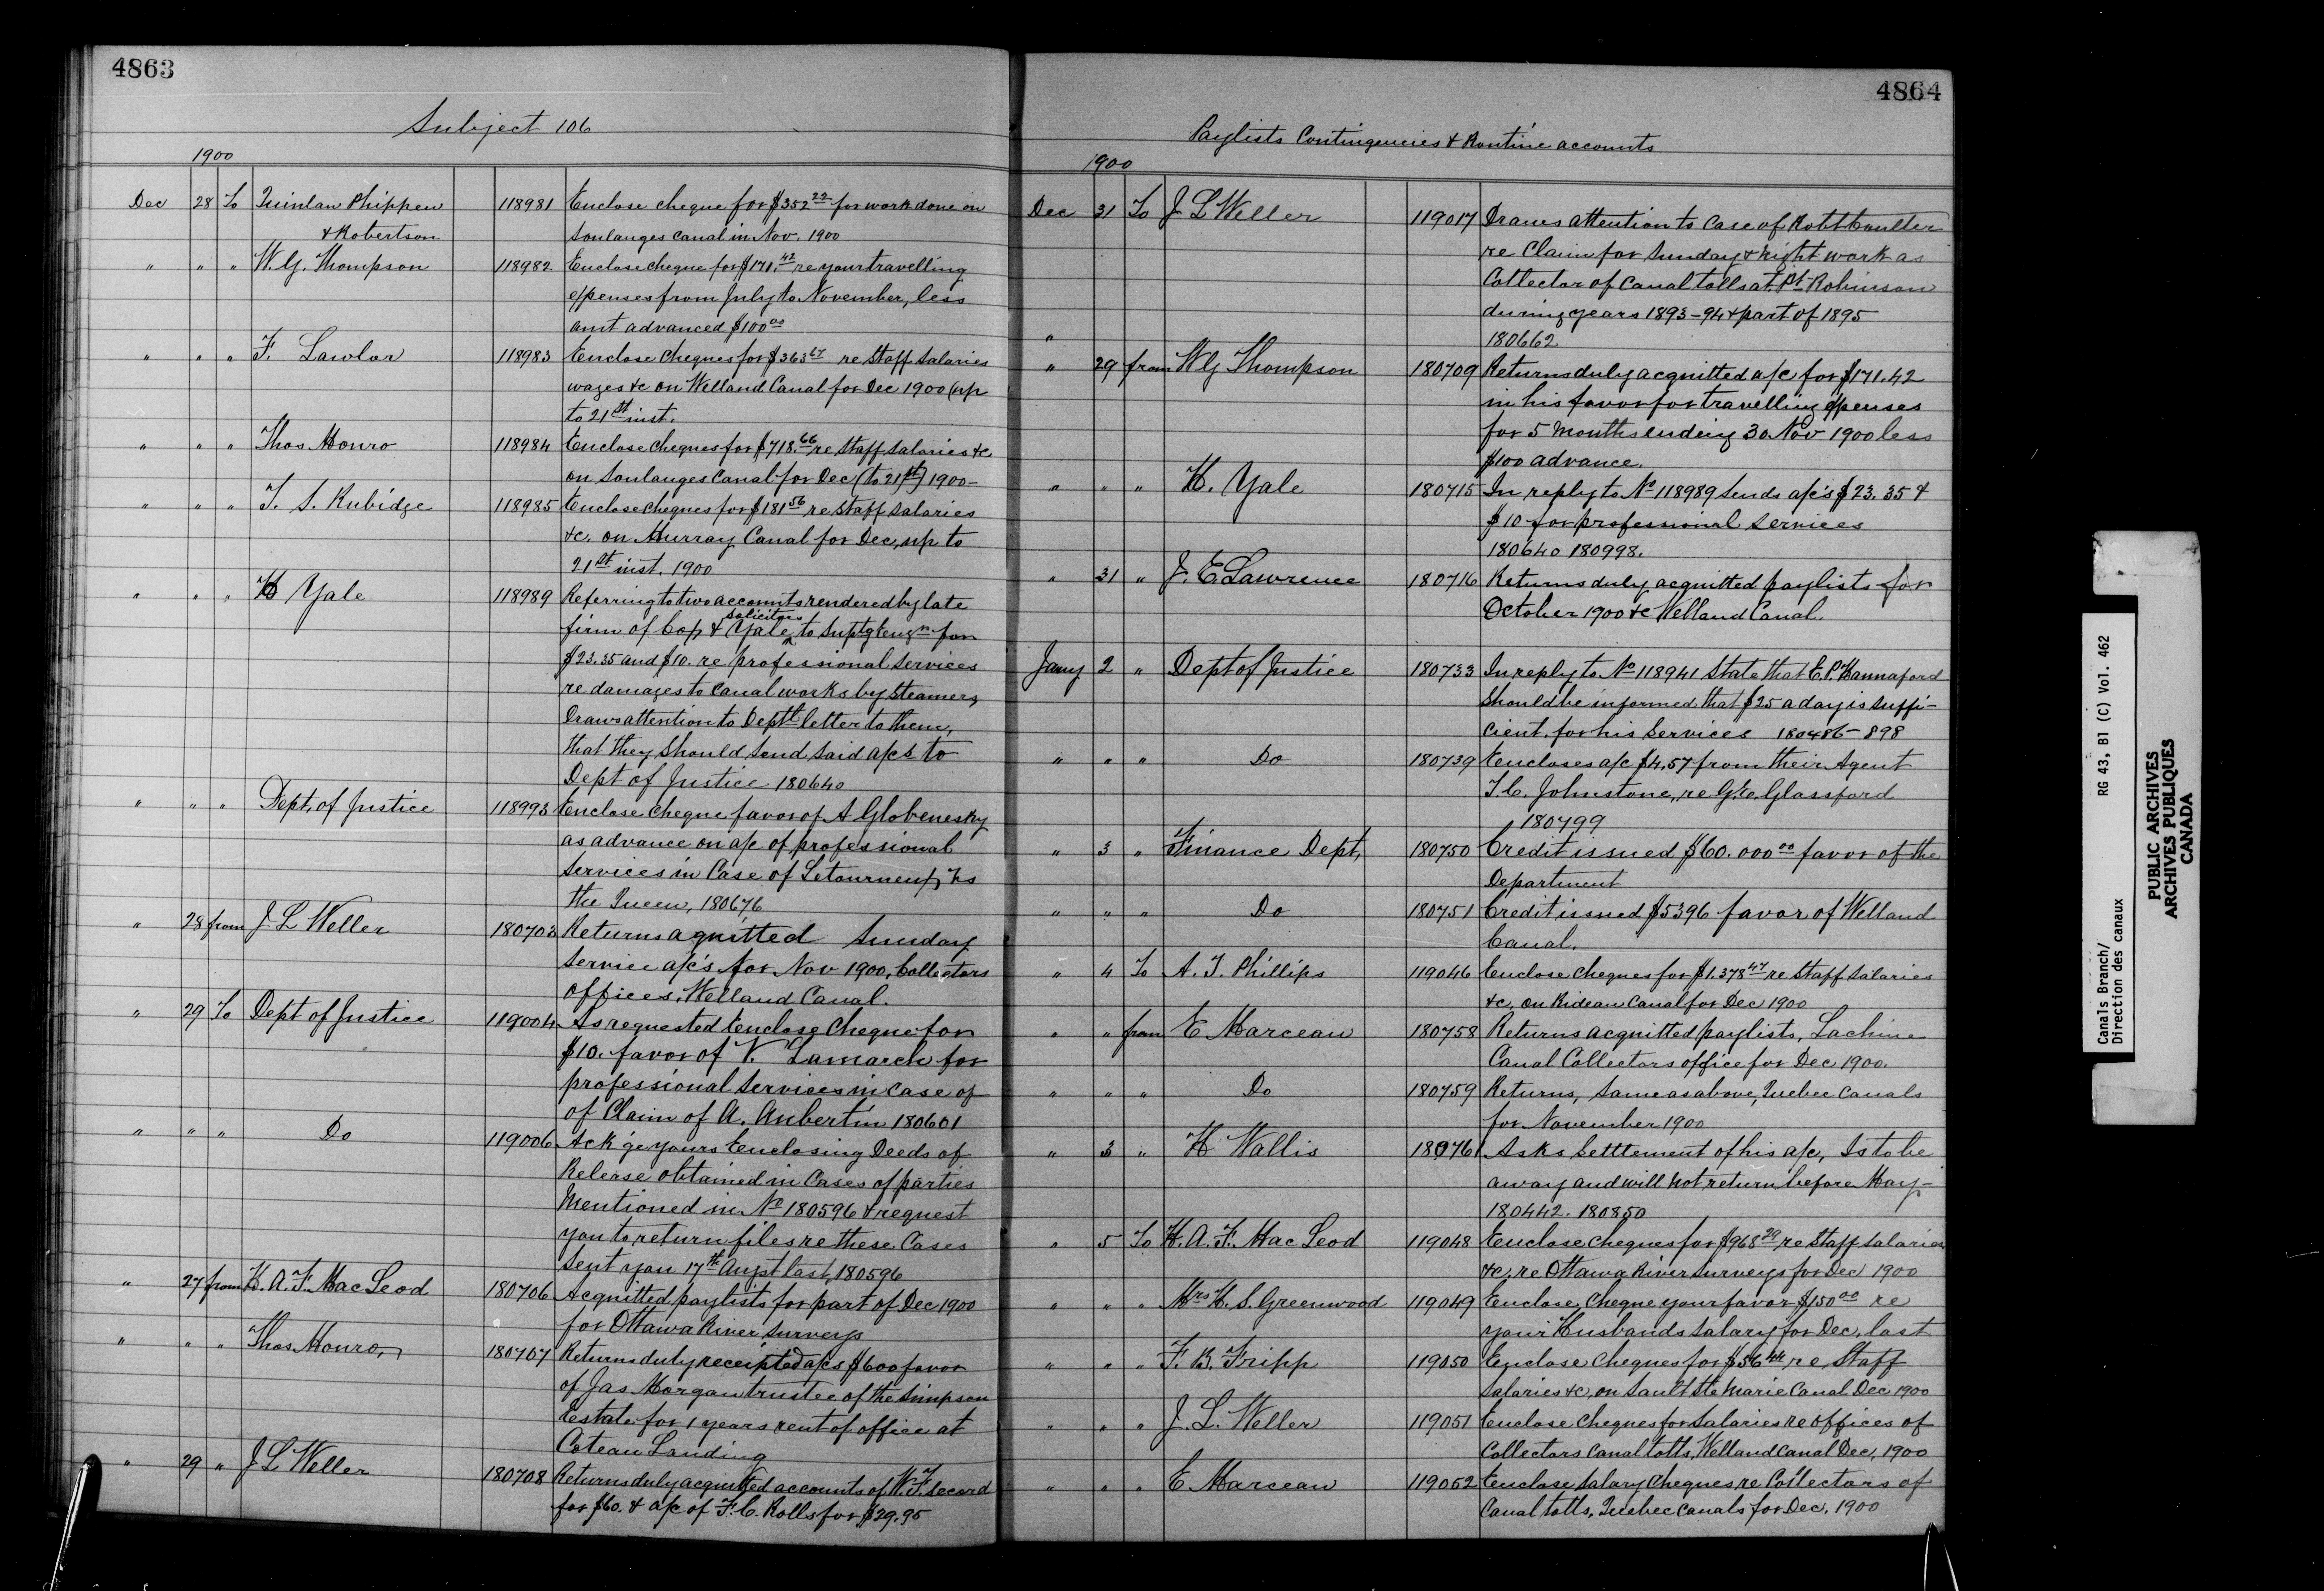 4863
Subject 106
1900
Dec 28 To Quinlan Phippen 118981 Enclose cheque for $352 22 for work done on
& Robertson Soulanges Canal in Nov. 1900
" " " W. G. Thompson 118982 Enclose cheque for $171. 42 re your travelling
expenses from July to November, less
amt advanced $100 00
" " " F. Lawlor 118983 Enclose cheques for $363 67 re Staff Salaries
wages &c on Welland Canal for Dec 1900 (up
to 21st inst.
" " " Thos Monro 118984 Enclose cheques for $718. 66 re Staff Salaries &c
on Soulanges Canal for Dec (to 21st) 1900-
" " " T. S. Rubidge 118985 Enclose cheques for $181 56 re Staff Salaries
&c. on Murray Canal for Dec, up to
21st inst. 1900
" " " H Yale 118989 Referring to two accounts rendered by late
Solicitors
firm of Cop & Yale to Suptg Engr for
$23.35 and $10. re professional services
re damages to Canal works by Steamers,
Draws attention to Deptl letter to them,
that they should send said a/cs to
Dept of Justice 180640
" " " Dept. of Justice 118993 Enclose cheque favor of A Globenesky
as advance on a/c of professional
Services in Case of Letourneux vs
the Queen, 180676
" 28 from J L Weller 180703 Returns aquitted Sunday
Service a/c's for Nov 1900, Collectors
offices, Welland Canal.
" 29 To Dept of Justice 119004 As requested Enclose Cheque for
$10. favor of V. Lamarch for
professional Services in case of
of Claim of A. Aubertin 180601
" " " Do 119006 Ack'ge yours Enclosing Deeds of
Release obtained in Cases of parties
Mentioned in No 180596 & request
you to return files re these Cases
Sent you 17th Augst last, 180596
" 27 from H. A. F. MacLeod 180706 Acquitted paylists for part of Dec 1900
for Ottawa River Surveys
" " " Thos Monro, 180707 Returns duly receipted a/cs $600 favor
of Jas Morgan trustee of the Simpson
Estate for 1 years rent of office at
Coteau Landing
" 29 " J L Weller 180708 Returns duly acquitted accounts of W. F. Secord
for $60. & a/c of F. C. Rolls for $29.95
4864
Paylists Contingencies & Routine accounts
1900
Dec 31 To J L Weller 119017 Draws attention to Case of Robt Coulter
re Claim for Sunday & Night work as
Collector of Canal tolls at Pt Robinson
during years 1893-94 & part of 1895
" 180662
" 29 from W G Thompson 180709 Returns duly acquitted a/c for $171.42
in his favor for travelling expenses
for 5 Months ending 30 Nov 1900 less
$100 advance.
" " " H. Yale 180715 In reply to No 118989 Sends a/c's $23.35 &
$10 for professional services
180640 180998.
" 31 " J. E Lawrence 180716 Returns duly acquitted paylists for
October 1900 &c Welland Canal.
Jany 2 " Dept of Justice 180733 In reply to No 118941 State that E. P. Hannaford
Should be informed that $25 a day is suffi-
cient for his services 180486-898
" " " Do 180739 Encloses a/c $4.57 from their Agent
T. C. Johnstone, re G. C. Glassford
180499
" 3 " Finance Dept, 180750 Credit issued $60.000 00 favor of the
Department
" " " Do 180751 Credit issued $5396 favor of Welland
Canal.
" 4 To A. T. Phillips 119046 Enclose cheques for $1.378 47 re Staff Salaries
&c. on Rideau Canal for Dec 1900
" " from E Marceau 180758 Returns acquitted paylists, Lachine
Canal Collectors office for Dec 1900.
" " " Do 180759 Returns, Same as above, Quebec Canals
for November 1900
" 3 " H Wallis 180761 Asks Settlement of his a/c, Is to be
away and will not return before May-
180442. 180850
" 5 To H. A. F. MacLeod 119048 Enclose cheques for $968 29 re Staff Salaries
&c. re Ottawa River Surveys for Dec 1900
" " " Mrs H. S. Greenwood 119049 Enclose, Cheque your favor $150 00 re
your Husbands Salary for Dec. last
" " " F. B. Fripp 119050 Enclose Cheques for $56 44 re Staff
Salaries &c, on Sault Ste Marie Canal Dec 1900
" " " J. L. Weller 119051 Enclose Cheques for Salaries re offices of
Collectors Canal tolls, Welland Canal Dec, 1900
" " " E Marceau 119052 Enclose Salary Cheques re Collectors of
Canal tolls, Quebec Canals for Dec. 1900
Canals Branch/ RG 43, B1 (C) Vol. 462
Direction des canaux
PUBLIC ARCHIVES
ARCHIVES PUBLIQUES
CANADA